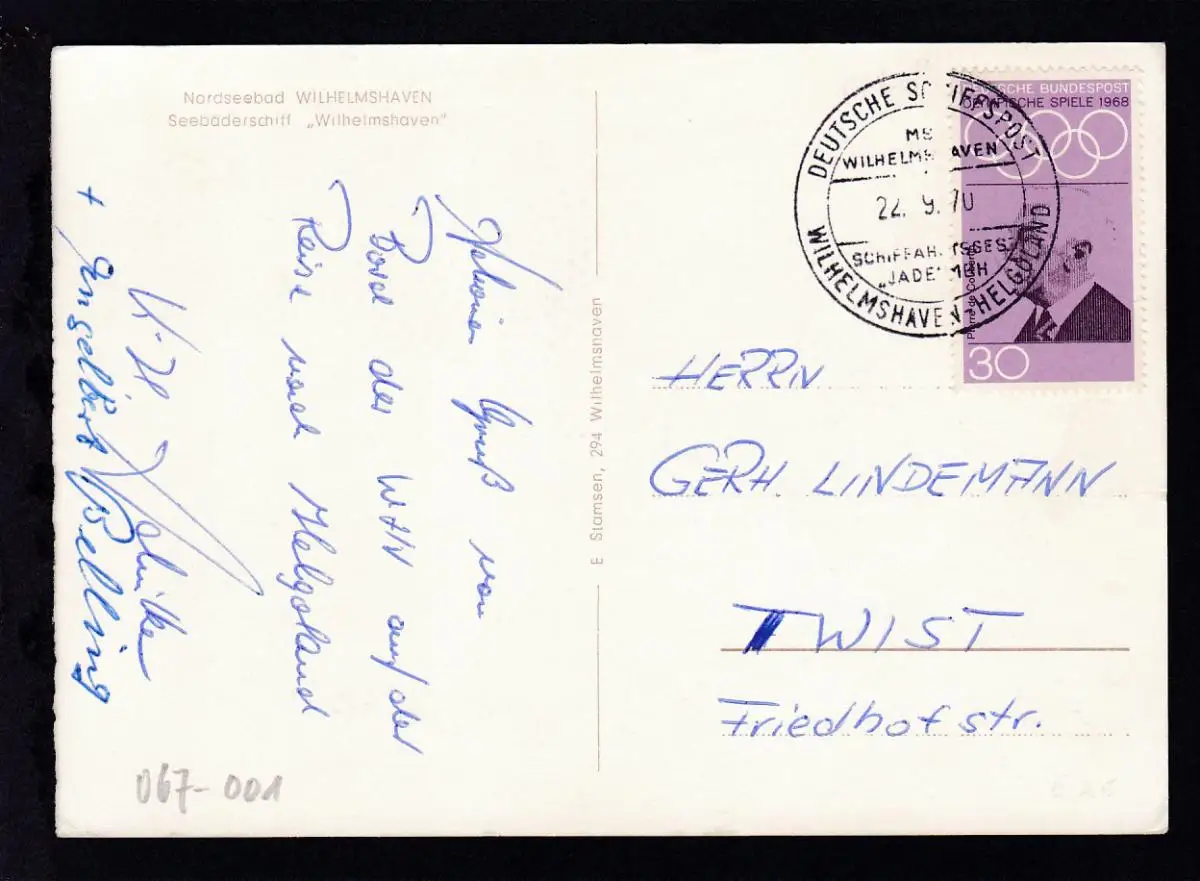 Nordseebad WILHELMSHAVEN
Seebäderschiff „Wilhelmshaven"
Schönen Gruß von
Bord der WHV auf der
Reise nach Helgoland
+ Engelbert Belling
E Stamsen, 294 Wilhelmshaven
DEUTSCHE SCHIFFSPOST
MS
WILHELMSHAVEN
22. 9. 70
SCHIFFAHRTSGES.
„JADE" MBH
WILHELMSHAVEN-HELGOLAND
DEUTSCHE BUNDESPOST
OLYMPISCHE SPIELE 1968
Pierre de Coubertin
30
HERRN
GERH. LINDEMANN
TWIST
Friedhofstr.
067-001